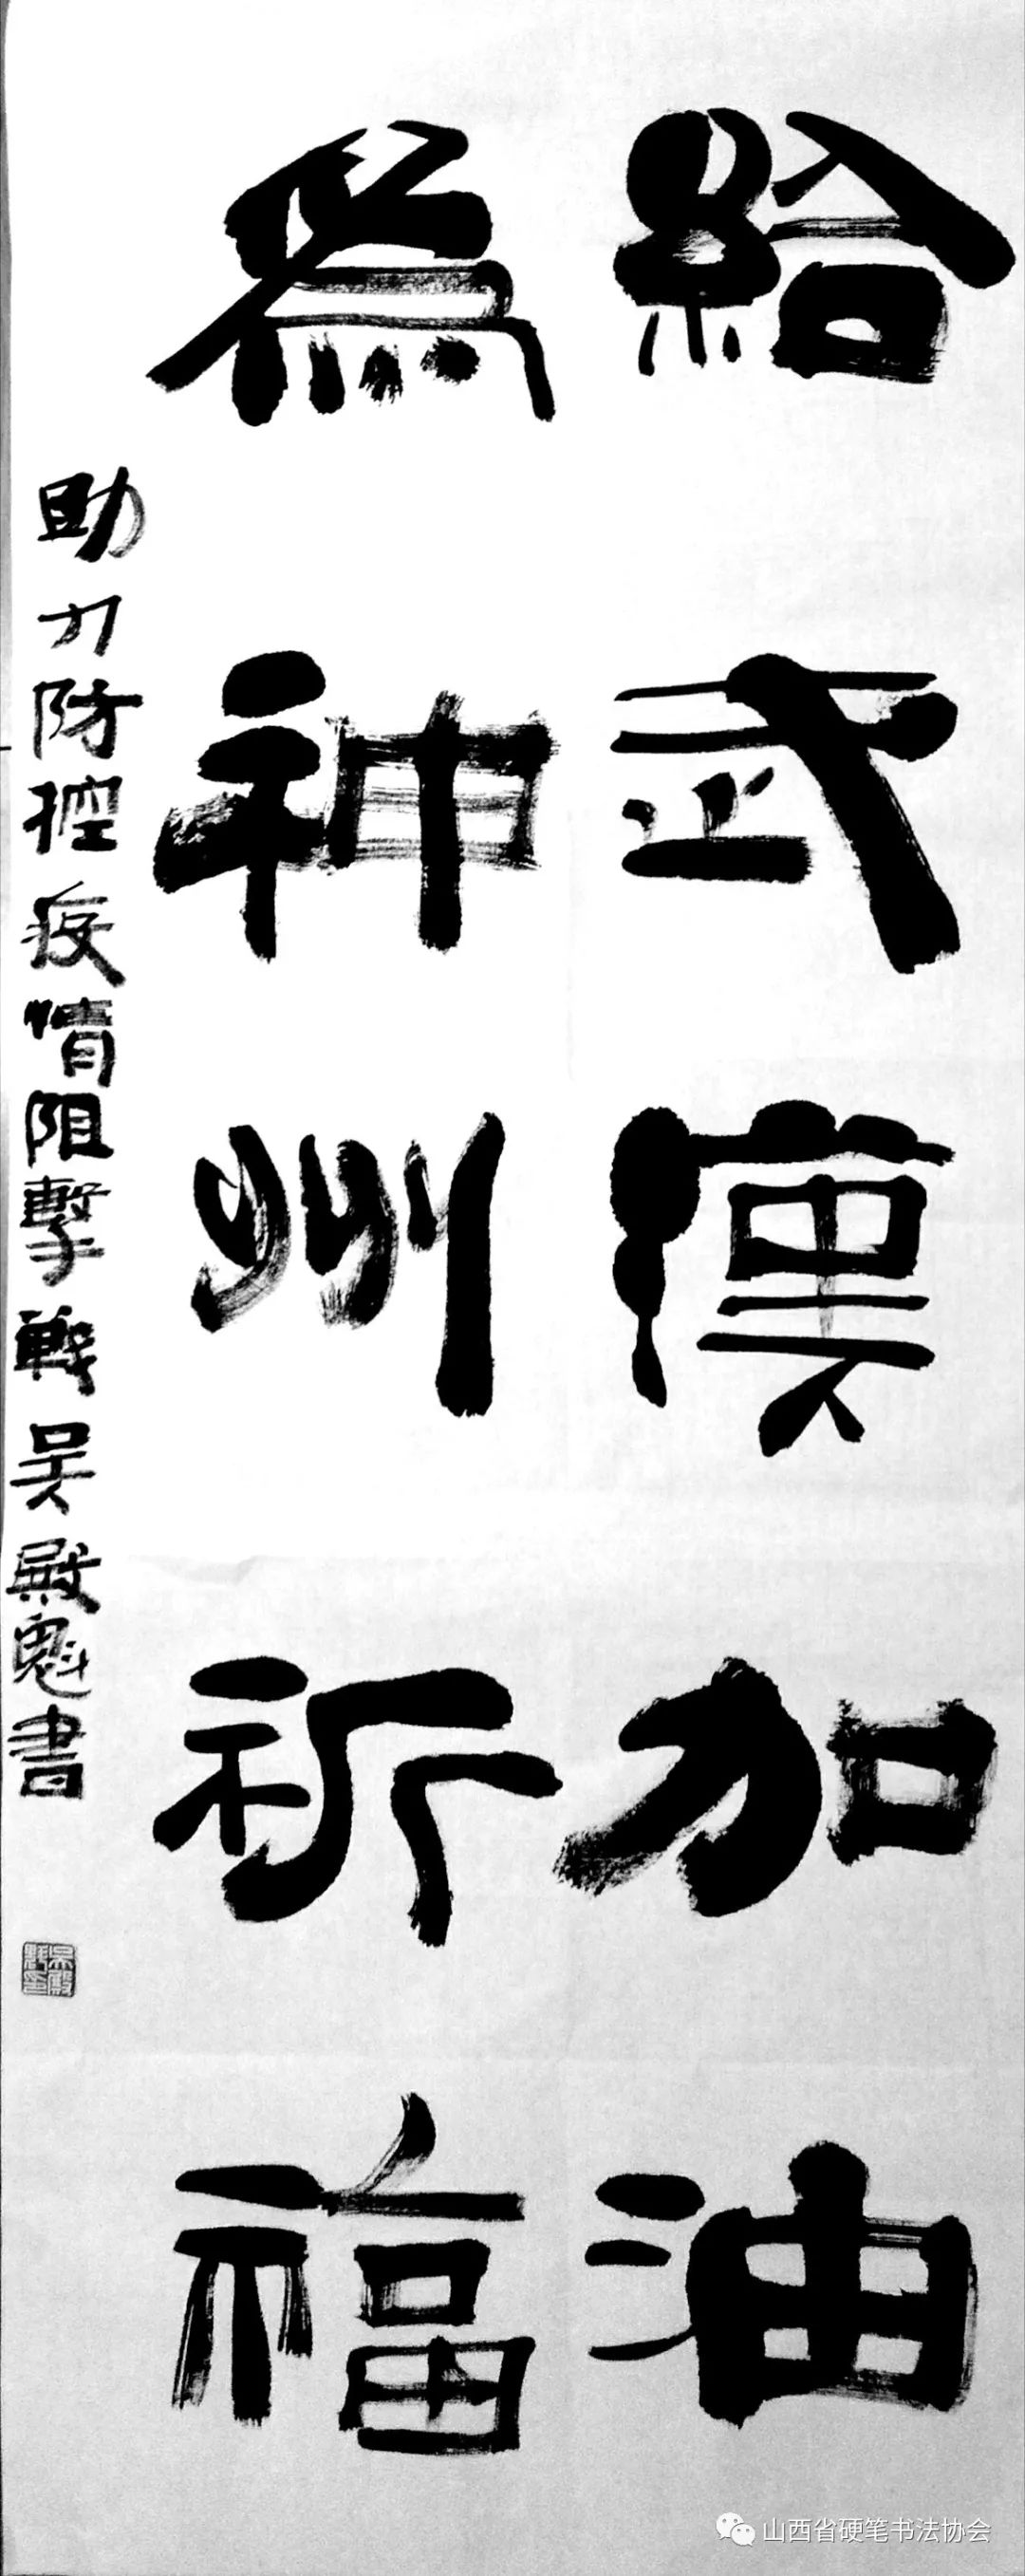 給武漢加油
為神州祈福
助力防控疫情阻擊戰吴殿魁書
山西省硬笔书法协会